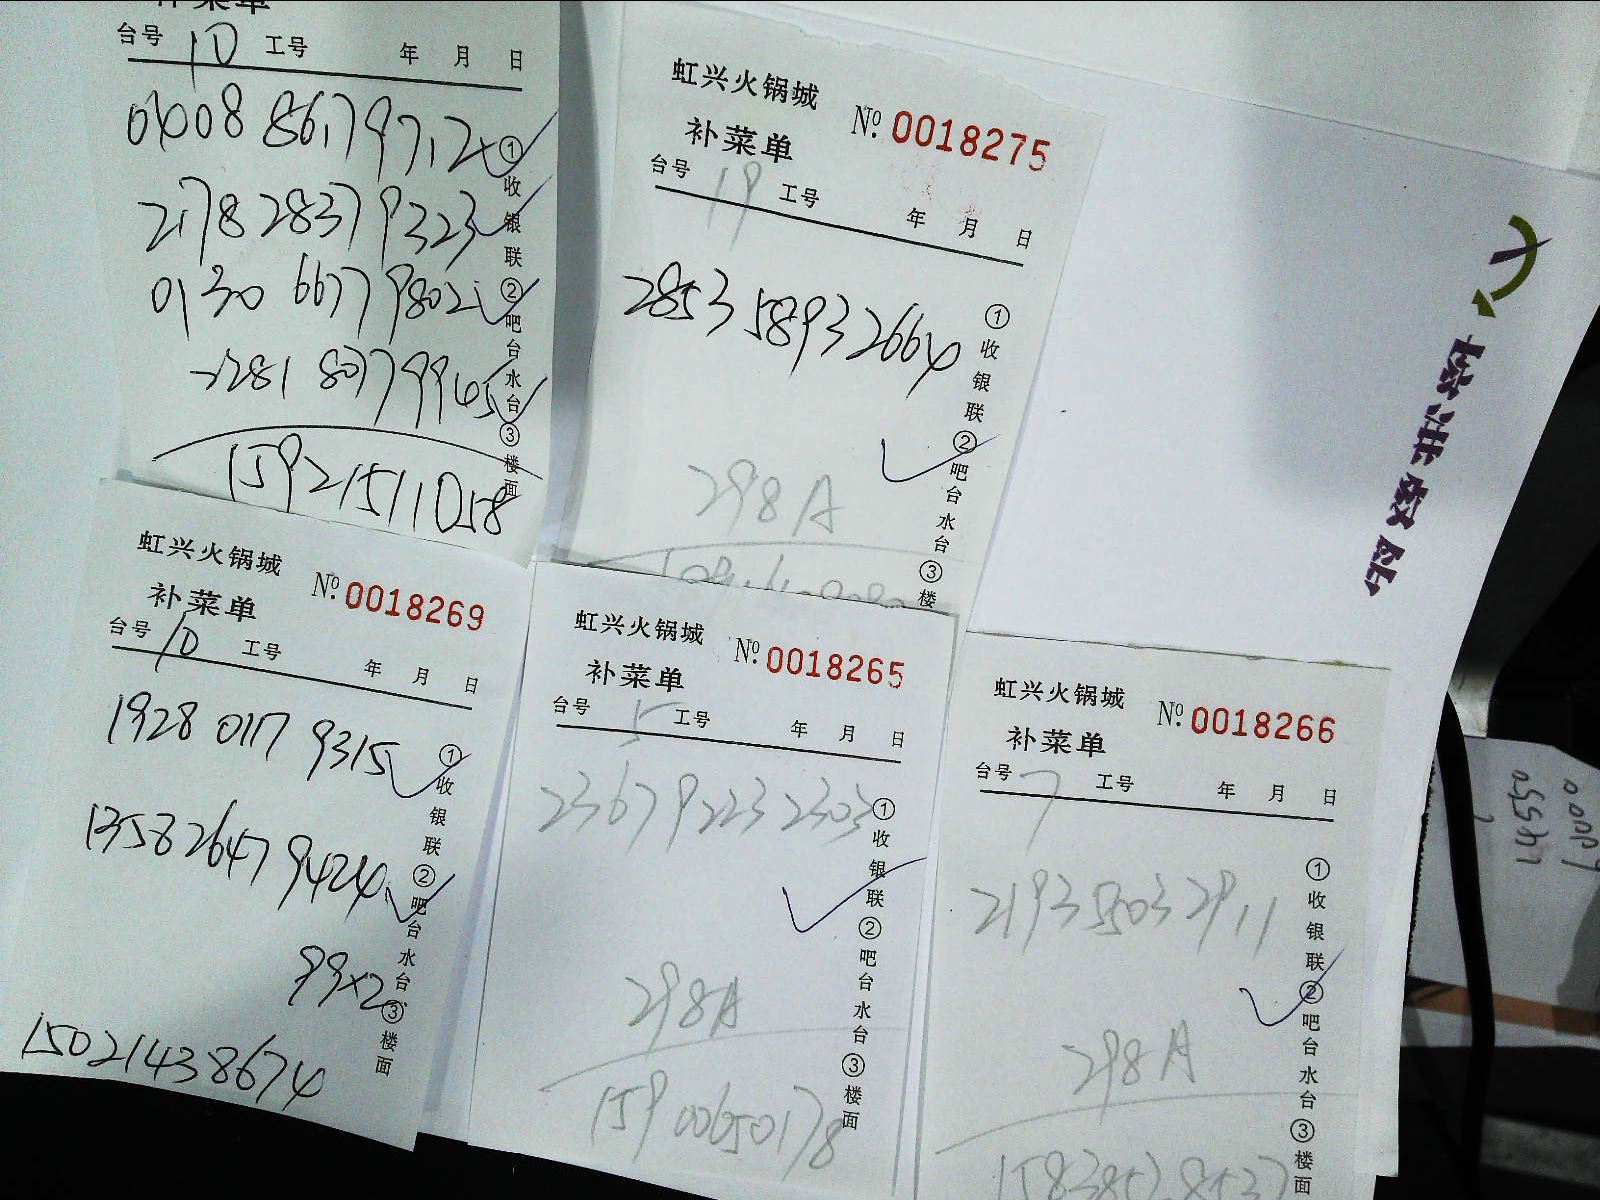 补菜单
台号 10 工号 年 月 日
0408 8617 9712
2178 2837 9323
0130 6677 9802
2281 8077 9945
15921511058
①收银联②吧台水台③楼面
虹兴火锅城
补菜单
No. 0018275
台号 19 工号 年 月 日
2853 5893 2664
298A
①收银联②吧台水台③楼
虹兴火锅城
补菜单
No. 0018269
台号 10 工号 年 月 日
1928 0117 9315
1358 2647 9424
99×2
15021438674
①收银联②吧台水台③楼面
虹兴火锅城
补菜单
No. 0018265
台号 5 工号 年 月 日
2367 9223 2303
298A
15900650178
①收银联②吧台水台③楼面
虹兴火锅城
补菜单
No. 0018266
台号 7 工号 年 月 日
2193 5503 2911
298A
①收银联②吧台水台③楼面